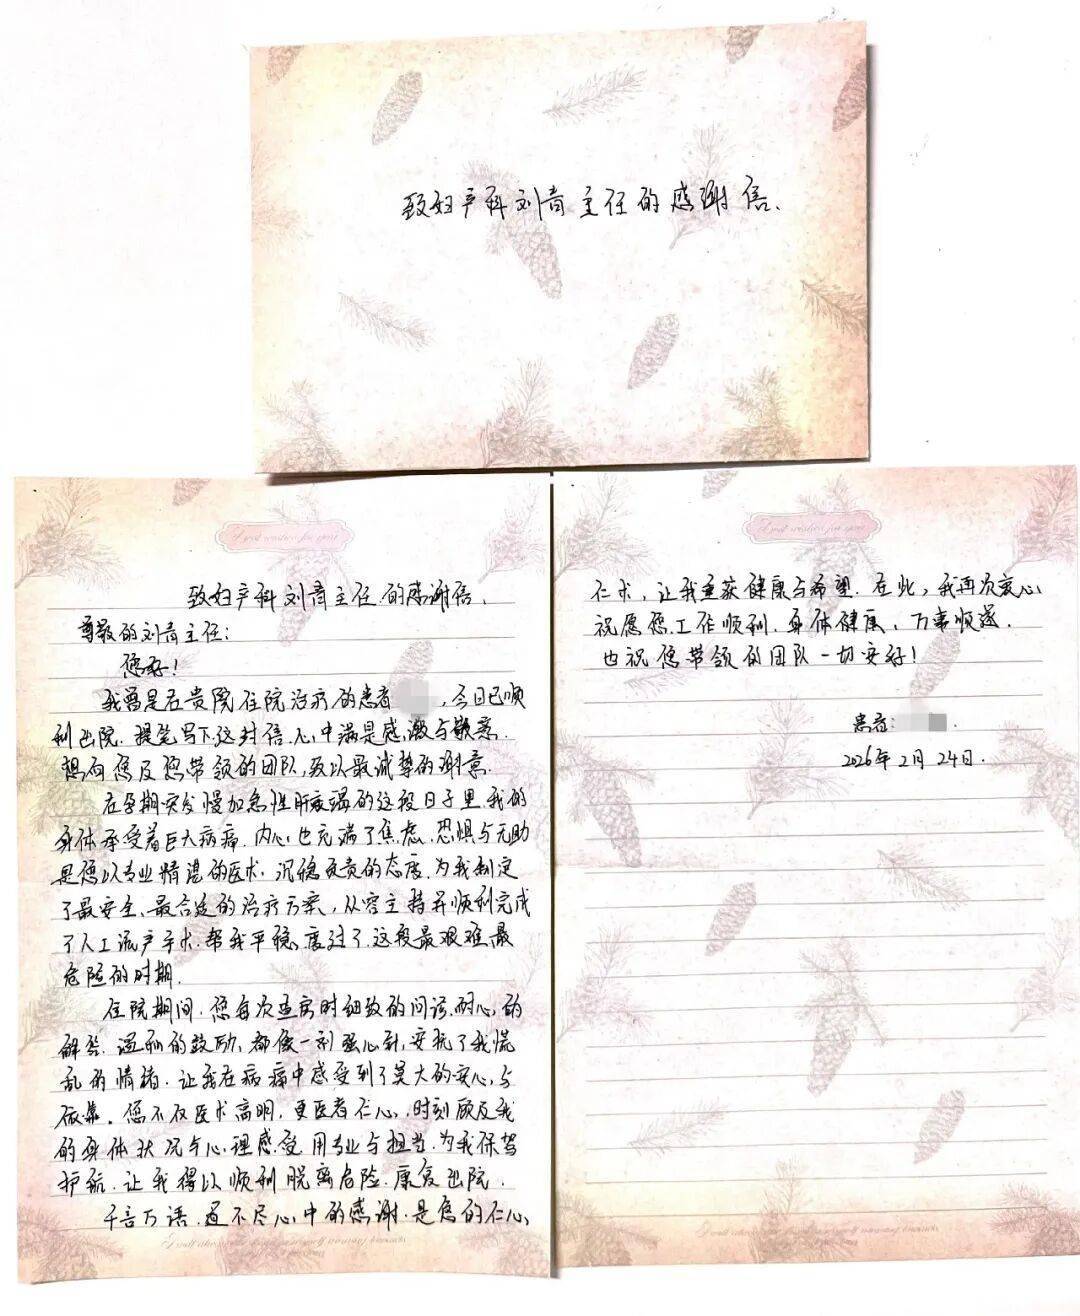 致妇产科刘青主任的感谢信.
Best wishes for you!
致妇产科刘青主任的感谢信.
尊敬的刘青主任:
您好!
我曾是在贵院住院治疗的患者 ,今日已顺
利出院.提笔写下这封信.心中满是感激与敬意.
想向您及您带领的团队,致以最诚挚的谢意.
在孕期突发慢加急性肝衰竭的这段日子里.我的
身体承受着巨大病痛.内心也充满了焦虑.恐惧与无助
是您以专业精湛的医术.沉稳负责的态度.为我制定
了最安全、最合适的治疗方案,从容主持并顺利完成
了人工流产手术.帮我平稳度过了这段最艰难.最
危险的时期.
住院期间.您每次查房时细致的问询.耐心的
解答.温和的鼓励,都像一剂强心针,安抚了我慌
乱的情绪.让我在病痛中感受到了莫大的安心与
依靠.您不仅医术高明,更医者仁心,时刻顾及我
的身体状况与心理感受.用专业与担当.为我保驾
护航.让我得以顺利脱离危险.康复出院.
千言万语.道不尽心中的感谢.是您的仁心
Best wishes for you!
仁术,让我重获健康与希望.在此,我再次衷心
祝愿您工作顺利.身体健康,万事顺遂.
也祝您带领的团队一切安好!
患者: .
2026年2月24日.